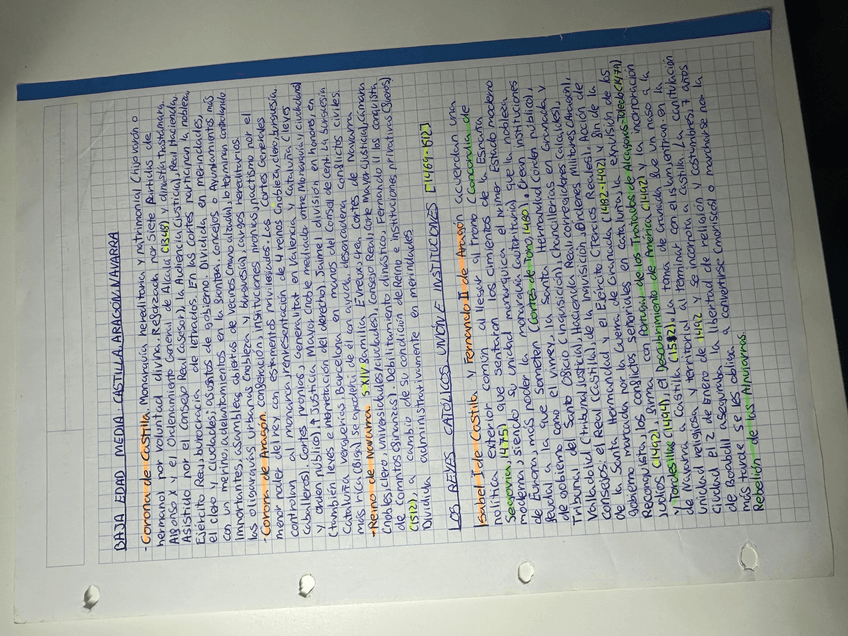 BAJA EDAD MEDIA: CASTILLA, ARAGÓN, NAVARRA
-Corona de Castilla. Monarquía hereditaria y patrimonial (hijo varón o
hermano) por voluntad divina. Reforzada por Siete Partidas de
Alfonso X y el Ordenamiento General de Alcalá (1348) y dinastía Trastámara.
Asistido por el Consejo Real (asesor), la Audiencia (Justicia), Real Hacienda,
Ejército Real, burocracias de letrados. En las Cortes participan la nobleza,
el clero y ciudades; asuntos de gobierno. Dividida en merindades,
con un merino, y adelantamientos en la frontera, concejos o Ayuntamientos más
importantes, asambleas abiertas de vecinos (mano alzada), lo terminan controlando
las oligarquías urbanas (nobleza y burguesía), cargos hereditarios
-Corona de Aragón: confederación, instituciones propias, pactismo por el
menor poder del rey con estamentos privilegiados. Las Cortes Generales
controlan al monarca, representación de 4 reinos (nobleza, clero, burguesía,
caballeros). Cortes propias, Generalitat en Valencia y Cataluña (leyes
y orden público), Justicia Mayor: Corte mediada entre Monarquía y ciudadanos
(también leyes e interpretación del derecho). Jaime I división en honores, en
Cataluña veguerías. Barcelona en manos del Consell de Cent. La burguesía
más rica (Biga) se apodera de él con ayuda, desencadena conflictos soc.
-Reino de Navarra. S.XIV familia Evreux, crea Cortes de Navarra
(nobles, clero, universidades/ciudades), Consejo Real, Corte Mayor (Justicia), Cámara
de Comptos (finanzas). Debilitamiento dinástico, Fernando II las conquista
(1512), a cambio de su condición de Reino e instituciones privativas (fueros)
Dividida administrativamente en merindades
LOS REYES CATÓLICOS, UNIÓN E INSTITUCIONES [1469-1512]
Isabel I de Castilla y Fernando II de Aragón acuerdan una
política exterior común al llegar al trono (Concordia de
Segovia, 1475), que sentaron los cimientos de la España
moderna, siendo su unidad monárquica el primer Estado moderno
de Europa, más poder la monarquía (autoritaria) que la nobleza
feudal a la que someten (Cortes de Toro, 1480). Crean instituciones
de gobierno como el virrey, la Santa Hermandad (orden público),
Tribunal del Santo Oficio (Inquisición), Chancillerías en Granada y
Valladolid (tribunal Justicia), Hacienda Real, corregidores (alcaldes),
consejos, el Real (Castilla), de Inquisición, Órdenes Militares (Aragón),
de la Santa Hermandad y el Ejército (Tercios Reales). Acción de
gobierno marcada por la Guerra de Granada (1482-1492) y fin de la
Reconquista, los conflictos señoriales en Cataluña, expulsión de los
judíos (1492), firma con Portugal de los Tratados de Alcaçovas-Toledo (1479)
y Tordesillas (1494), el Descubrimiento de América (1492) y la incorporación
de Navarra a Castilla (1512). La toma de Granada fue un paso a la
unidad religiosa y territorial al terminar con el en la
ciudad el 2 de enero de 1492 y se incorpora a Castilla. La capitulación
de Boabdil asegura la libertad de religión y costumbres; 7 años
más tarde se les obliga a convertirse (moriscos) o marcharse por la
Rebelión de las Alpujarras.